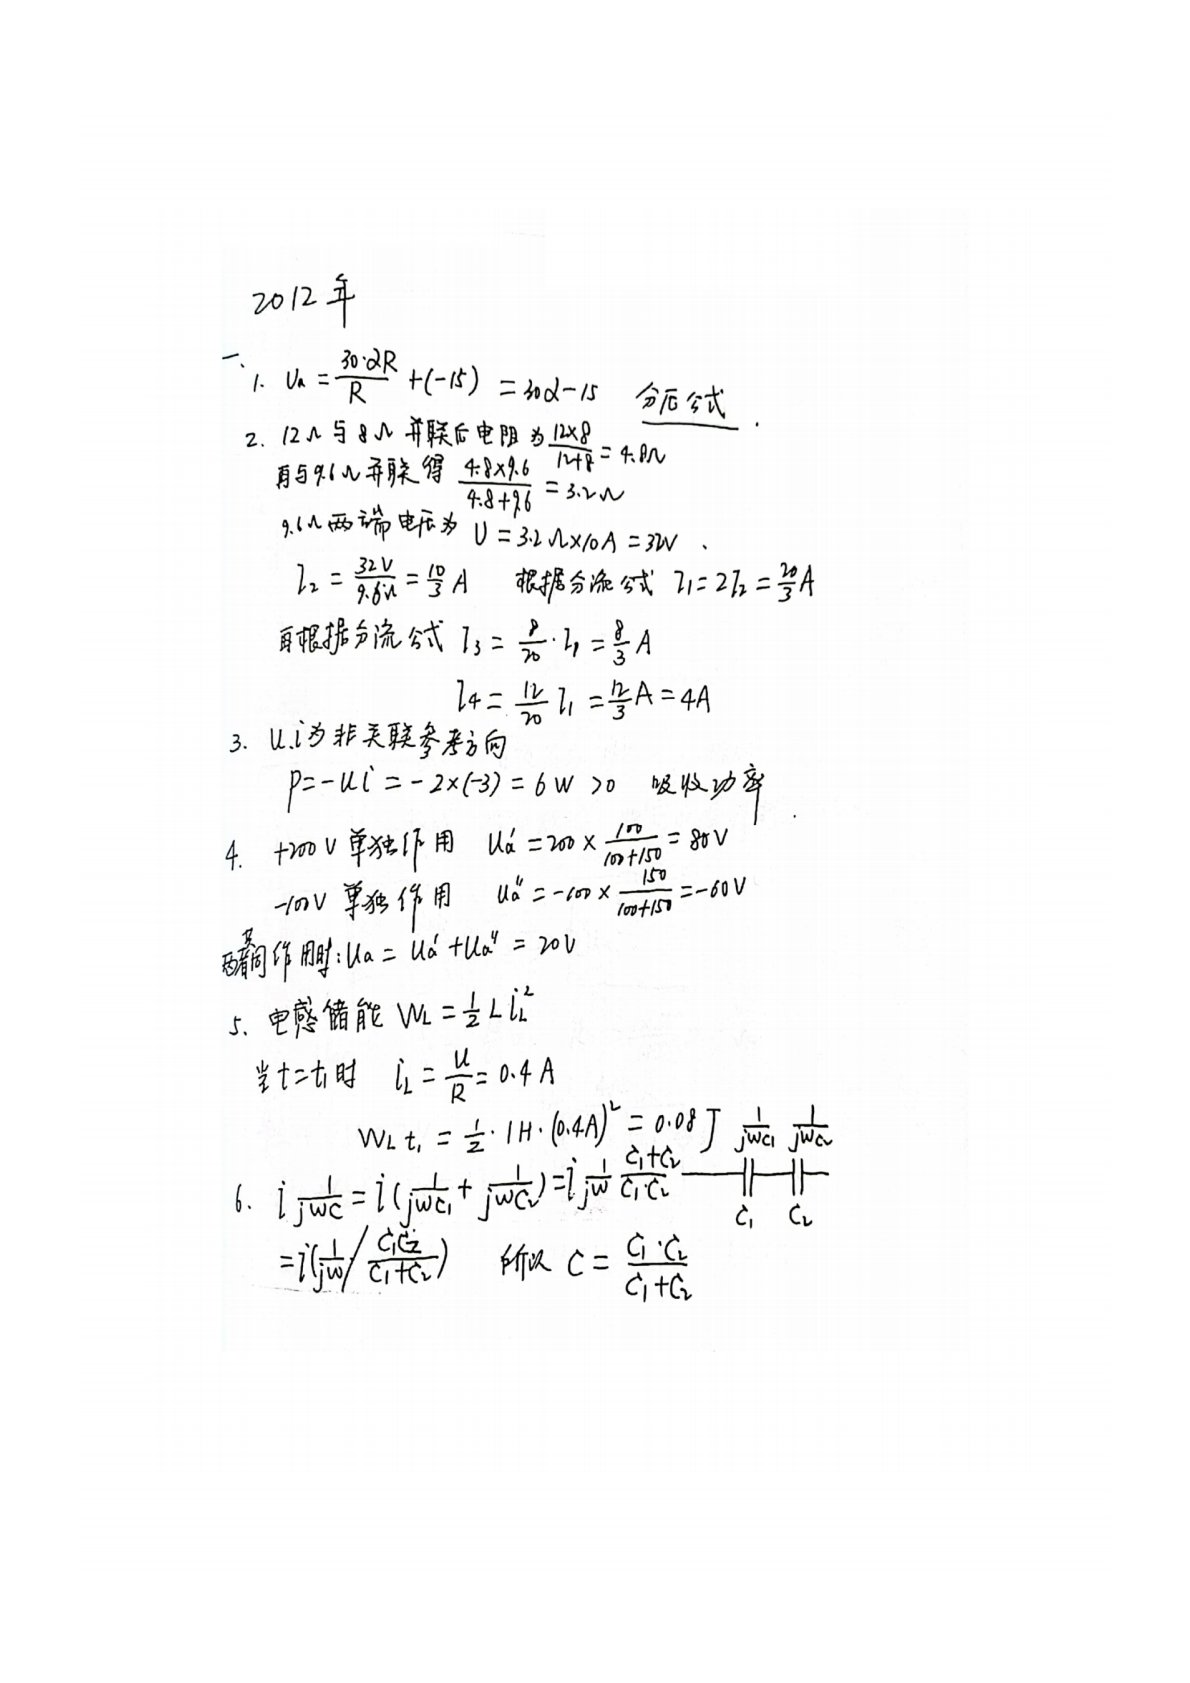 2012年
一、
1. Ua = 30·αR/R + (-15) = 30α-15 分压公式.
2. 12Ω与8Ω并联后电阻为 12×8/12+8 = 4.8Ω
再与9.6Ω并联得 4.8×9.6/4.8+9.6 = 3.2Ω
9.6Ω两端电压为 U = 3.2Ω×10A = 32V.
I₂ = 32V/9.6Ω = 10/3 A 根据分流公式 I₁ = 2I₂ = 20/3 A
再根据分流公式 I₃ = 8/20 · I₁ = 8/3 A
I₄ = 12/20 I₁ = 12/3 A = 4A
3. U.i为非关联参考方向
P = -Ui = -2×(-3) = 6W >0 吸收功率.
4. +200V单独作用 Ua' = 200 × 100/100+150 = 80V
-100V 单独作用 Ua'' = -100 × 150/100+150 = -60V
两者共同作用时: Ua = Ua' + Ua'' = 20V
5. 电感储能 WL = 1/2 L iL²
当t=t₁时 iL = U/R = 0.4A
WL t₁ = 1/2 · 1H · (0.4A)² = 0.08J 1/jwC₁ 1/jwC₂
6. i 1/jwC = i(1/jwC₁ + 1/jwC₂) = i 1/jw C₁+C₂/C₁·C₂
C₁ C₂
= i(1/jw / C₁C₂/C₁+C₂) 所以 C = C₁·C₂/C₁+C₂